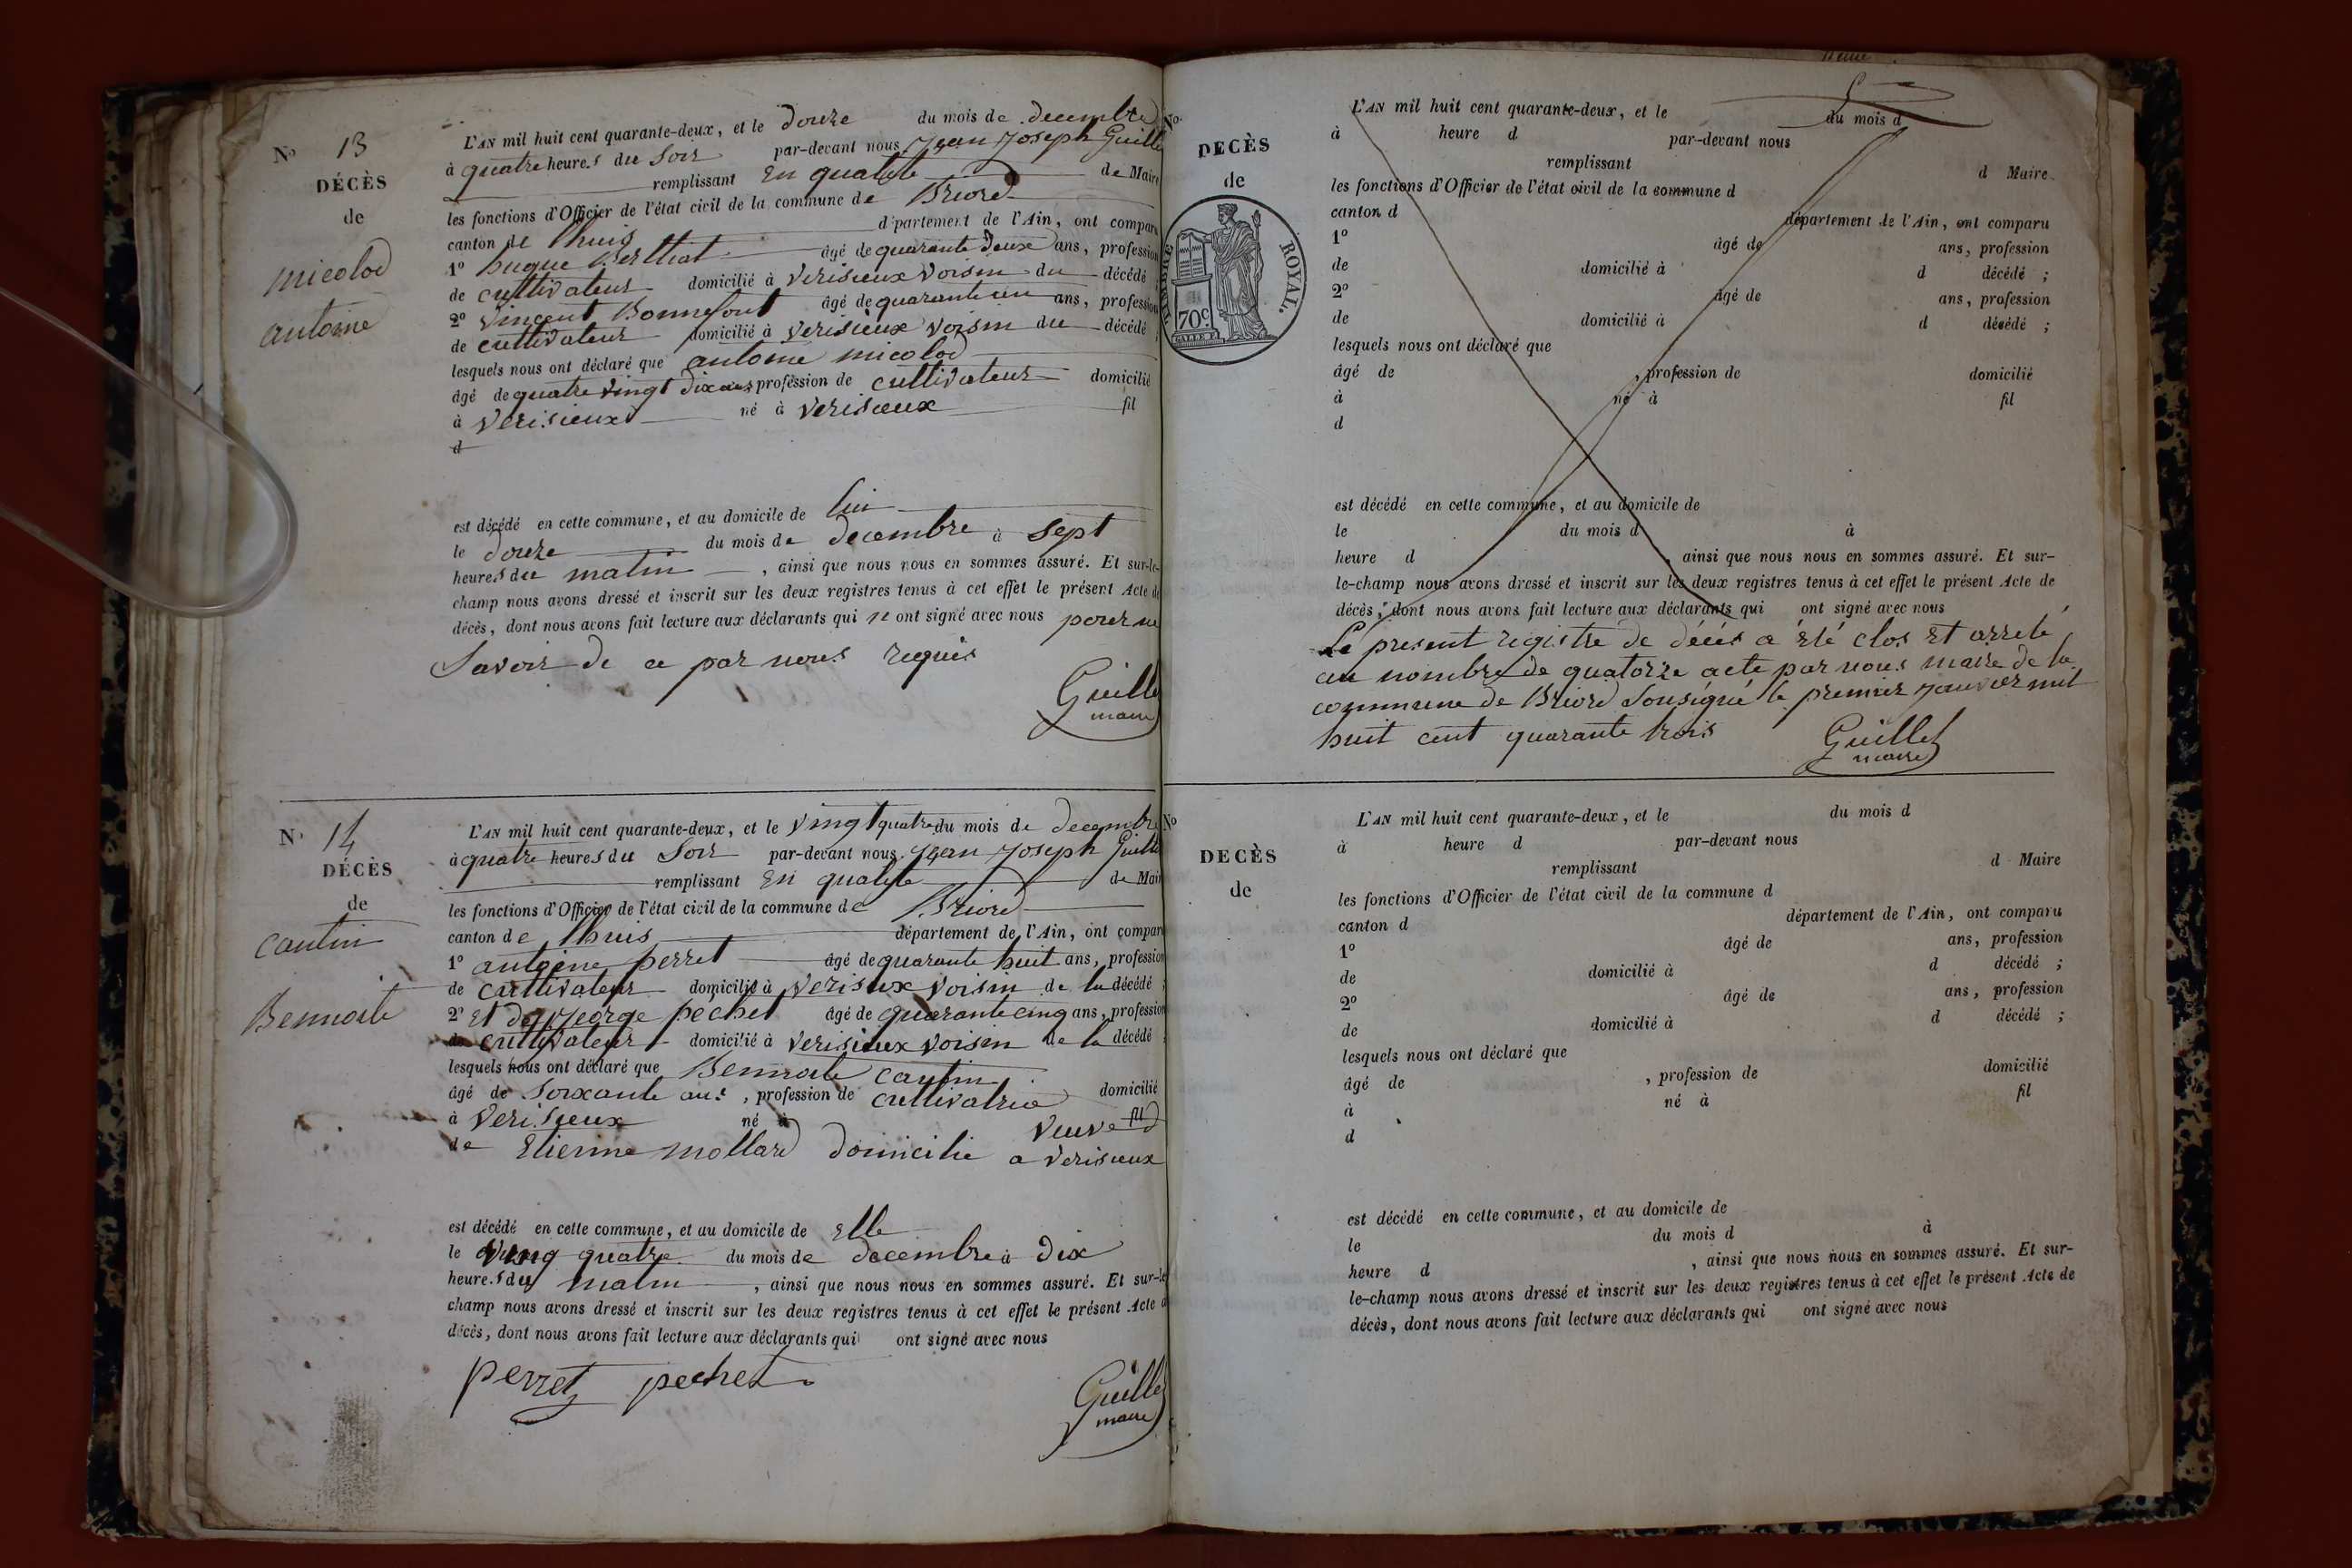 N° 13
DÉCÈS
de
micolod
antoine
L'AN mil huit cent quarante-deux, et le douze du mois de decembre
à quatre heures du soir par-devant nous Jean Joseph Guillet
remplissant En qualité de Maire
les fonctions d'Officier de l'état civil de la commune de Briord
canton de lhuis département de l'Ain, ont comparu
1° hugue Berthet âgé de quarante deux ans, profession
de cultivateur domicilié à Verisieux voisin du décédé ;
2° Vincent Bonnefont âgé de quarante un ans, profession
de cultivateur domicilié à Verisieux voisin du décédé ;
lesquels nous ont déclaré que antoine micolod
âgé de quatre vingt dix ans profession de cultivateur domicilié
à Verisieux né à Verisieux fil
d
est décédé en cette commune, et au domicile de lui
le douze du mois de decembre à sept
heures du matin, ainsi que nous nous en sommes assuré. Et sur-le-
champ nous avons dressé et inscrit sur les deux registres tenus à cet effet le présent Acte de
décès, dont nous avons fait lecture aux déclarants qui n ont signé avec nous pour ne
Savoir de ce par nous requis
Guillet
maire
N° 14
DÉCÈS
de
cantin
Bennoite
L'AN mil huit cent quarante-deux, et le vingt quatre du mois de decembre
à quatre heures du Soir par-devant nous Jean Joseph Guillet
remplissant En qualité de Maire
les fonctions d'Officier de l'état civil de la commune de Briord
canton de lhuis département de l'Ain, ont comparu
1° antoine perret âgé de quarante huit ans, profession
de cultivateur domicilié à Verisieux voisin de la décédé ;
2° et de George pechet âgé de quarante cinq ans, profession
de cultivateur domicilié à Verisieux voisin de la décédé ;
lesquels nous ont déclaré que Bennoite cantin
âgé de soixante ans, profession de cultivatrice domicilié
à Verisieux né à veuve fil
de Etienne mollard domicilie a Verisieux
est décédé en cette commune, et au domicile de Elle
le Ving quatre du mois de decembre à dix
heures du matin, ainsi que nous nous en sommes assuré. Et sur-le
champ nous avons dressé et inscrit sur les deux registres tenus à cet effet le présent Acte d
décès, dont nous avons fait lecture aux déclarants qui ont signé avec nous
perret pechet
Guillet
maire
N°
DECÈS
de
TIMBRE ROYAL.
70c
L'AN mil huit cent quarante-deux, et le du mois d
à heure d par-devant nous
remplissant d Maire
les fonctions d'Officier de l'état civil de la commune d
canton d département de l'Ain, ont comparu
1° âgé de ans, profession
de domicilié à d décédé ;
2° âgé de ans, profession
de domicilié à d décédé ;
lesquels nous ont déclaré que
âgé de , profession de domicilié
à né à fil
d
est décédé en cette commune, et au domicile de
le du mois d à
heure d , ainsi que nous nous en sommes assuré. Et sur-
le-champ nous avons dressé et inscrit sur les deux registres tenus à cet effet le présent Acte de
décès, dont nous avons fait lecture aux déclarants qui ont signé avec nous
Le present registre de décés a été clos et arreté
au nombre de quatorze acte par nous maire de la
commune de Briord Sousigné le premier janvier mil
huit cent quarante trois
Guillet
maire
N°
DECÈS
de
L'AN mil huit cent quarante-deux, et le du mois d
à heure d par-devant nous
remplissant d Maire
les fonctions d'Officier de l'état civil de la commune d
canton d département de l'Ain, ont comparu
1° âgé de ans, profession
de domicilié à d décédé ;
2° âgé de ans, profession
de domicilié à d décédé ;
lesquels nous ont déclaré que
âgé de , profession de domicilié
à né à fil
d
est décédé en cette commune, et au domicile de
le du mois d à
heure d , ainsi que nous nous en sommes assuré. Et sur-
le-champ nous avons dressé et inscrit sur les deux registres tenus à cet effet le présent Acte de
décès, dont nous avons fait lecture aux déclarants qui ont signé avec nous